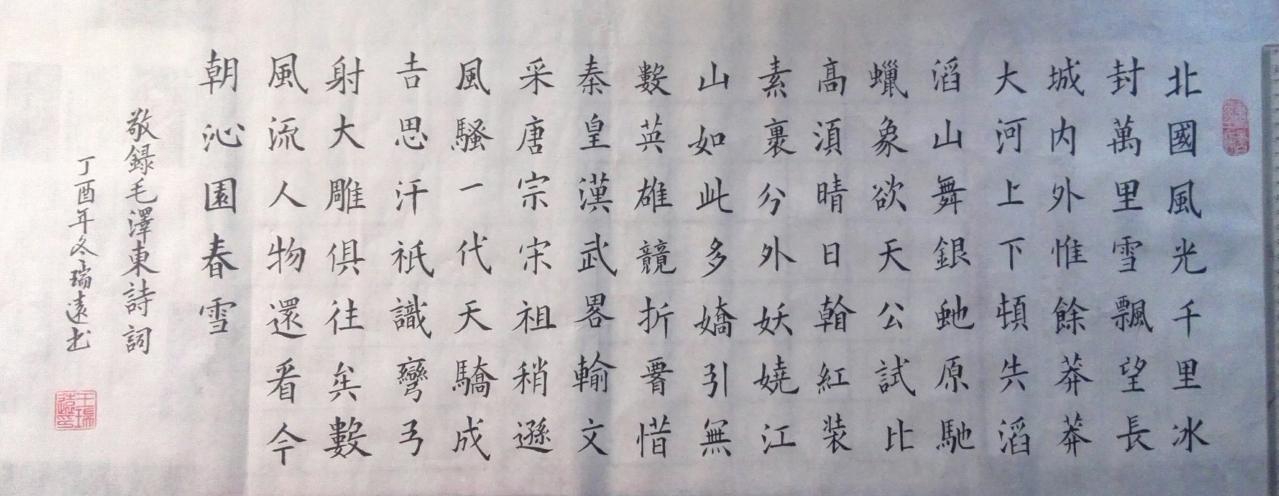 北國風光千里冰
封萬里雪飄望長
城内外惟餘莽莽
大河上下頓失滔
滔山舞銀虵原馳
蠟象欲天公試比
高湏晴日翰紅装
素裹分外妖嬈江
山如此多嬌引無
數英雄競折晉惜
秦皇漢武畧輸文
采唐宗宋祖稍遜
風騷一代天驕成
吉思汗祇識彎弓
射大雕俱往矣數
風流人物還看今
朝沁園春雪
敬録毛澤東詩詞
丁酉年冬瑞遠书
王瑞遠印